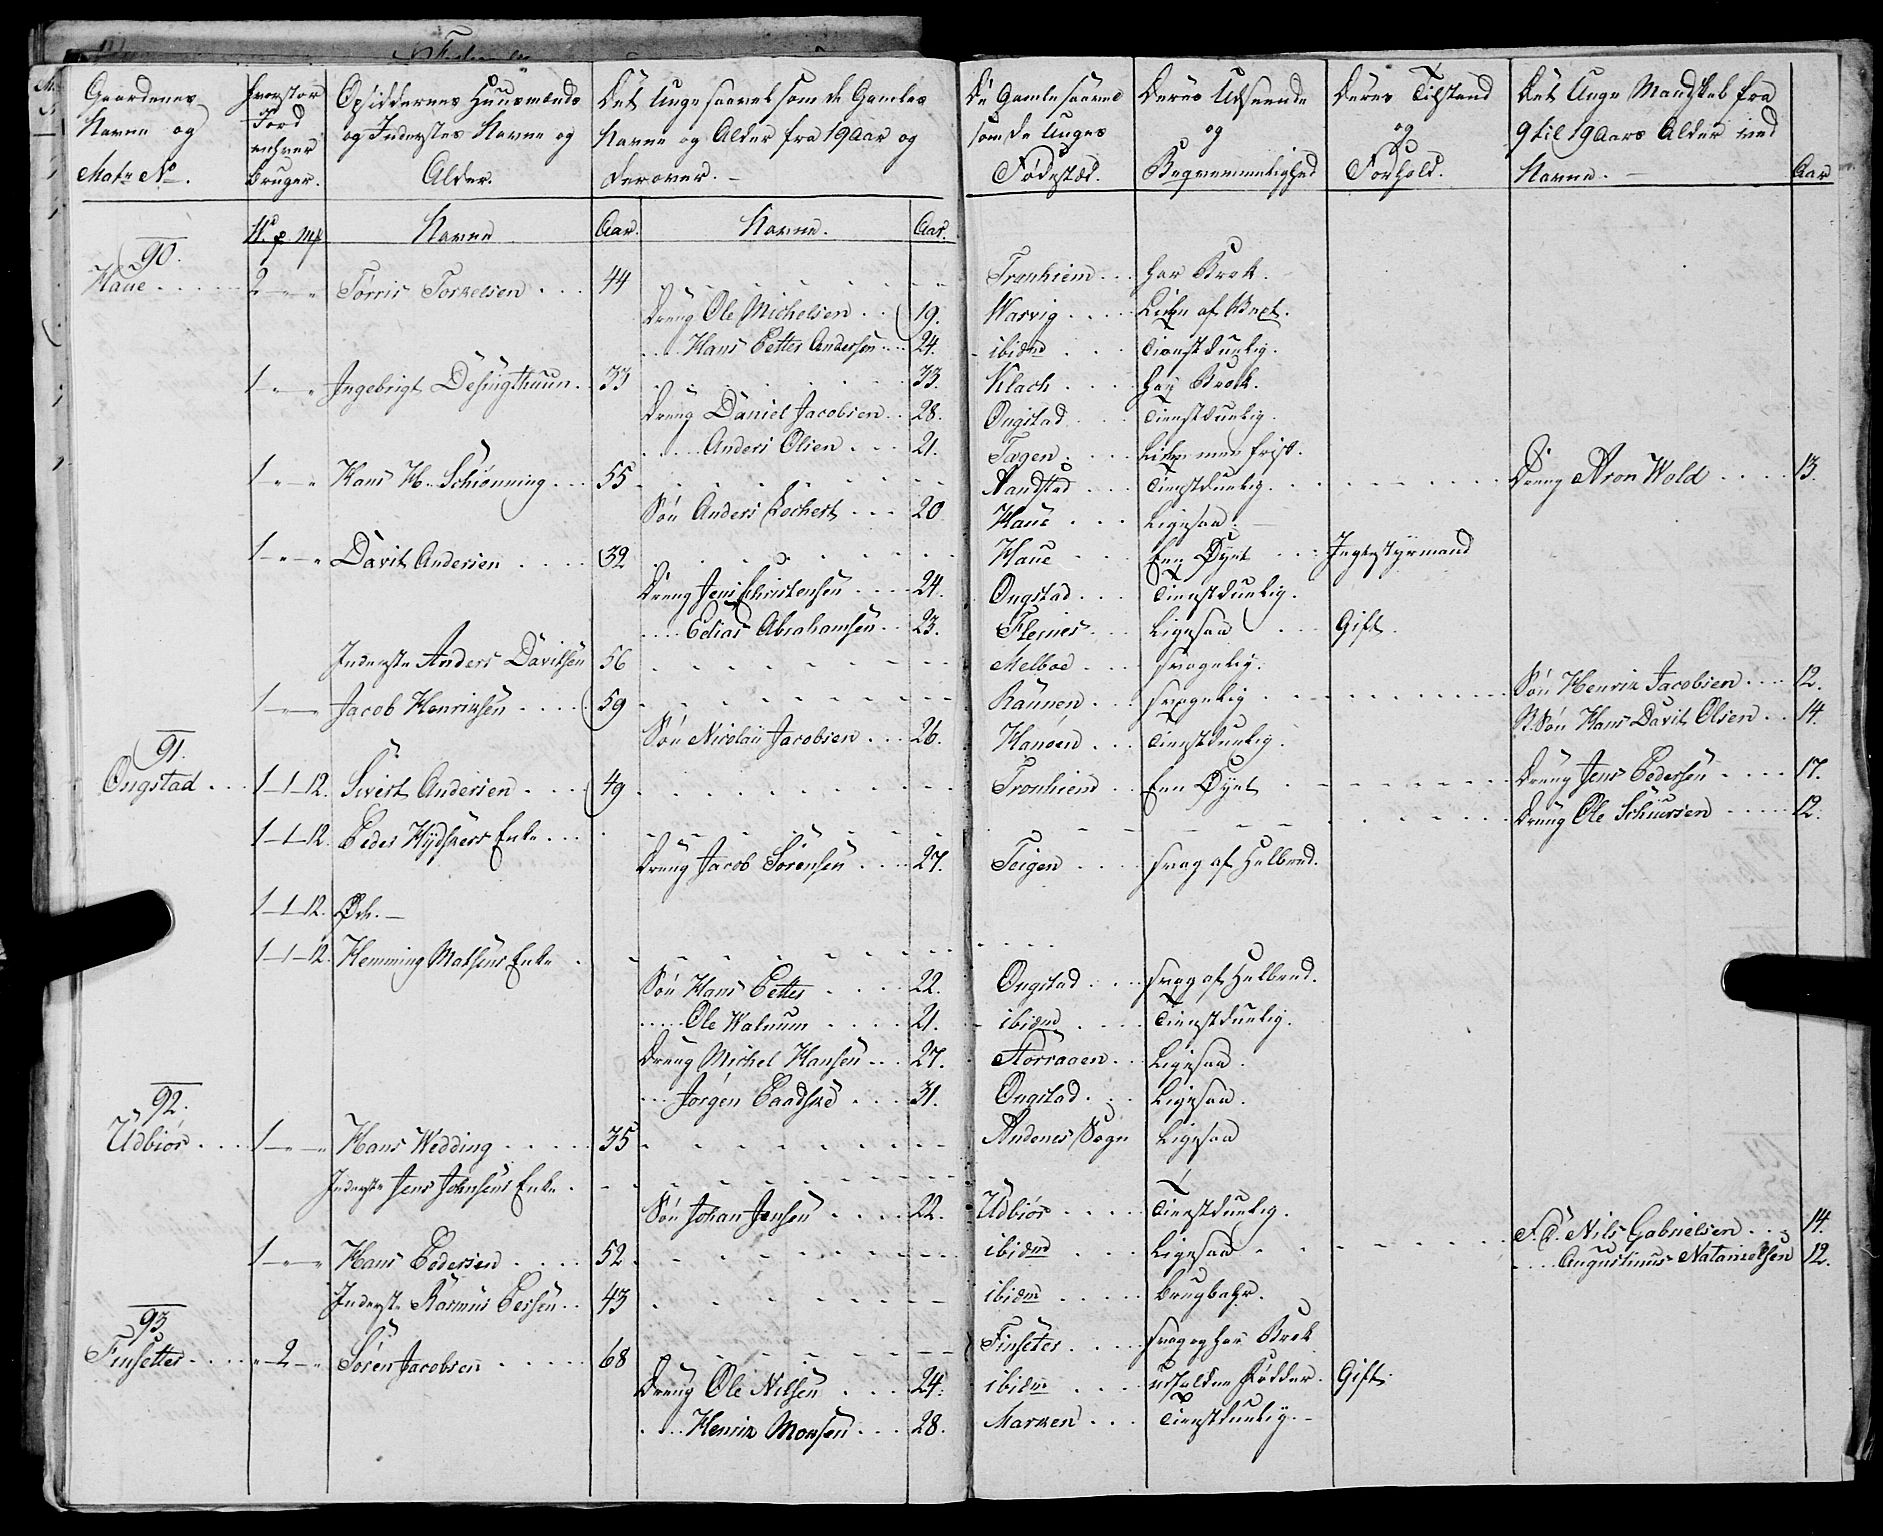 Gaardenes Navne og Matr No. | hvorstor Jord enhver Bruger. | Opsiddernes Huusmænds og Inderstes Navne og Alder. | Det Unge saavel som de Gamles Navne og Alder fra 19 Aar og derover. | De Gamle saavel som de Unges Fødested. | Deres Udseende og Beqvemmelighed | Deres Tilstand og Forhold. | Det Unge Mandskab fra 9 til 19 Aars Alder ved Navne. | Aar
Wd. p. Mk | Navne | Aar. | Navne. | Aar.
90.
Haue 2 - " - " Torris Torkelsen 44 Tronhiem har Brok.
Dreng Ole Michelsen 19. Warvig Liden af Vext.
Hans Petter Andersen 24. ibidem Tienstduelig.
1 - " - " Ingebrigt Desingthuun 33 33. Klach har Brok.
Dreng Daniel Jacobsen 28. Ongstad Tienstduelig.
Anders Olsen 21. Tagen Liden men frisk.
1 - " - " Hans H. Schiønning 55 Sandstad Tienstduelig. Dreng Aron Wold 13.
Søn Anders Lochert 20 Haue Ligesaa.
1 - " - " Davit Andersen 32 Haue Een Øyet Jagtestyrmand
Dreng Jens Christensen 24. Ongstad Tienstduelig.
Edias Abrahamsen 23. Flesnes Ligesaa Gift.
Inderste Anders Davitsen 56 Melboe svagelig.
1 - " - " Jacob Henriksen 59 Rannen svagelig Søn Henrik Jacobsen 12.
Søn Nicolai Jacobsen 26. Hanøen Tienstduelig. St. Søn Hans Davit Olsen 14.
91.
Ongstad 1-1-12. Sivert Andersen 49 Tronhiem Een Øyet Dreng Jens Pedersen 17.
1-1-12. Peder Hydskers Enke Dreng Ole Schiersen 12.
Dreng Jacob Sørensen 27. Teigen svag af Helbred.
1-1-12. Øde.
1-1-12. Hemming Matsens Enke
Søn Hans Petter 22. Ongstad svag af Helbred.
Ole Walnum 21. ibidem Tienstduelig.
Dreng Michel Hansen 27. Storraaen Ligesaa.
Jørgen Baadske 31. Ongstad Ligesaa.
92.
Udbiør 1 - " - " Hans Wedding 35 Andenes Sogn Ligesaa
Inderste Jens Johnsens Enke
Søn Johan Jensen 22. Udbiør Tienstduelig.
1 - " - " Hans Pedersen 52 ibidem Ligesaa F. S. Nils Gabrielsen 14.
Augustinus Natanielsen 12.
Inderste Rasmus Persen 43 ibidem Brugbahr.
93
Finsetter " - 2 - " Søren Jacobsen 68 Finseter svag og har Brok
Dreng Ole Nilsen 24. ibidem usselden Fødder. Gift.
Henrik Monsen 28. Marken Tienstduelig.